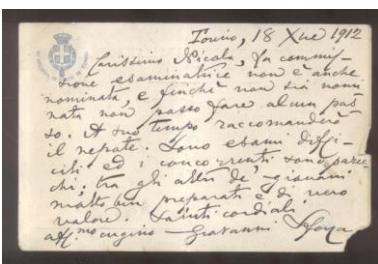 Torino, 18 Xbre 1912
Carissimo Nicola, La commis-
sione esaminatrice non è anche
nominata, e finchè non sia nomi
nata non posso fare alcun pas
so. A suo tempo raccomanderò
il nepote. Sono esami diffi-
cili ed i concorrenti sono parec
chi, tra gli altri de' giovani
molto ben preparati e di vero
valore. Saluti cordiali
aff.mo cugino Giovanni